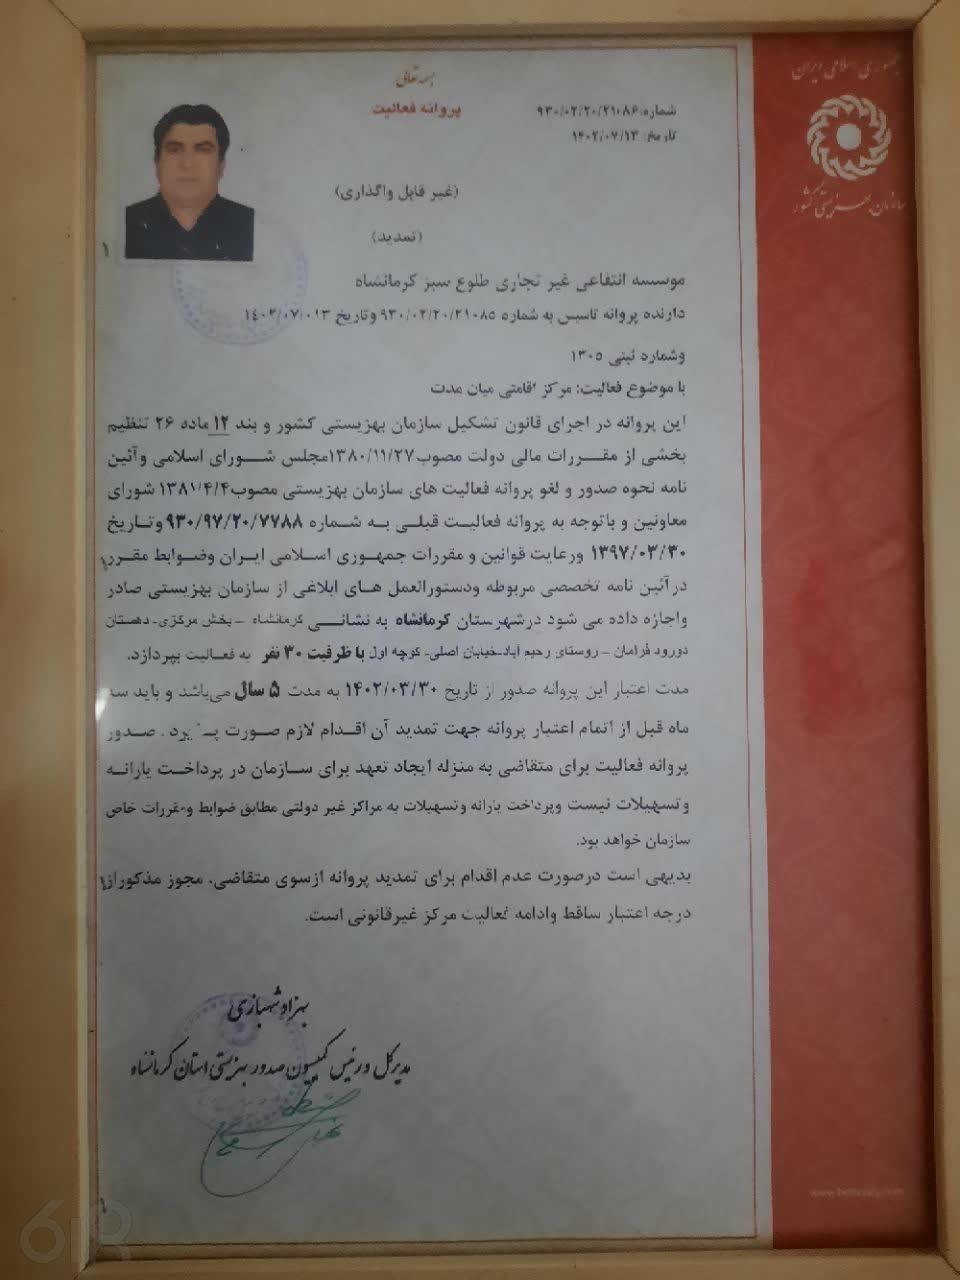 جمهوری اسلامی ایران
سازمان بهزیستی کشور
بسمه تعالی
پروانه فعالیت
شماره: ۹۳۰/۰۲/۲۰/۲۱۰۸۶
تاریخ: ۱۴۰۲/۰۷/۱۳
(غیر قابل واگذاری)
(تمدید)
موسسه انتفاعی غیر تجاری طلوع سبز کرمانشاه
دارنده پروانه تاسیس به شماره ۹۳۰/۰۲/۲۰/۲۱۰۸۵ وتاریخ ۱۴۰۲/۰۷/۰۱۳
وشماره ثبتی ۱۳۰۵
با موضوع فعالیت: مرکز اقامتی میان مدت
این پروانه در اجرای قانون تشکیل سازمان بهزیستی کشور و بند ۱۲ ماده ۲۶ تنظیم
بخشی از مقررات مالی دولت مصوب ۱۳۸۰/۱۱/۲۷مجلس شورای اسلامی وآئین
نامه نحوه صدور و لغو پروانه فعالیت های سازمان بهزیستی مصوب۱۳۸۱/۴/۴ شورای
معاونین و باتوجه به پروانه فعالیت قبلی به شماره ۹۳۰/۹۷/۲۰/۷۷۸۸ وتاریخ
۱۳۹۷/۰۳/۳۰ ورعایت قوانین و مقررات جمهوری اسلامی ایران وضوابط مقرر
درآئین نامه تخصصی مربوطه ودستورالعمل های ابلاغی از سازمان بهزیستی صادر
واجازه داده می شود درشهرستان کرمانشاه به نشانی کرمانشاه - بخش مرکزی- دهستان
دورود فرامان - روستای رحیم آباد-خیابان اصلی- کوچه اول با ظرفیت ۳۰ نفر به فعالیت بپردازد.
مدت اعتبار این پروانه صدور از تاریخ ۱۴۰۲/۰۳/۳۰ به مدت ۵ سال می‌باشد و باید سه
ماه قبل از اتمام اعتبار پروانه جهت تمدید آن اقدام لازم صورت پذیرد. صدور
پروانه فعالیت برای متقاضی به منزله ایجاد تعهد برای سازمان در پرداخت یارانه
وتسهیلات نیست وپرداخت یارانه وتسهیلات به مراکز غیر دولتی مطابق ضوابط ومقررات خاص
سازمان خواهد بود.
بدیهی است درصورت عدم اقدام برای تمدید پروانه ازسوی متقاضی، مجوز مذکوراز
درجه اعتبار ساقط وادامه فعالیت مرکز غیرقانونی است.
بهزاد شهبازی
مدیرکل و رئیس کمیسیون صدور بهزیستی استان کرمانشاه